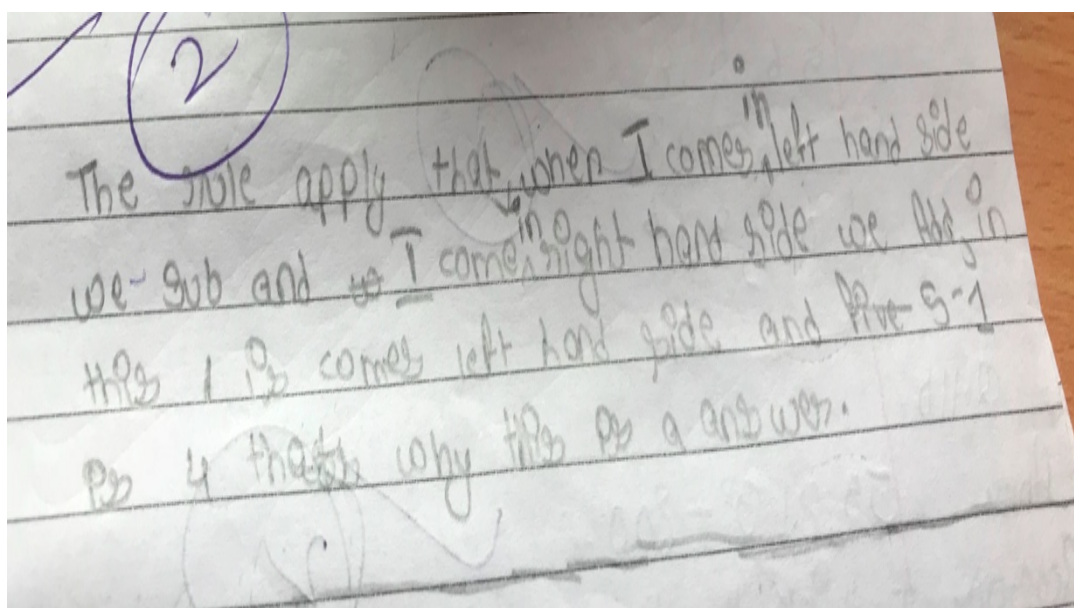 2
The rule apply that when I comes in left hand side
we sub and I come in right hand side we Add in
this I is comes left hand side and five 5-1
is 4 thats why this is a answer.